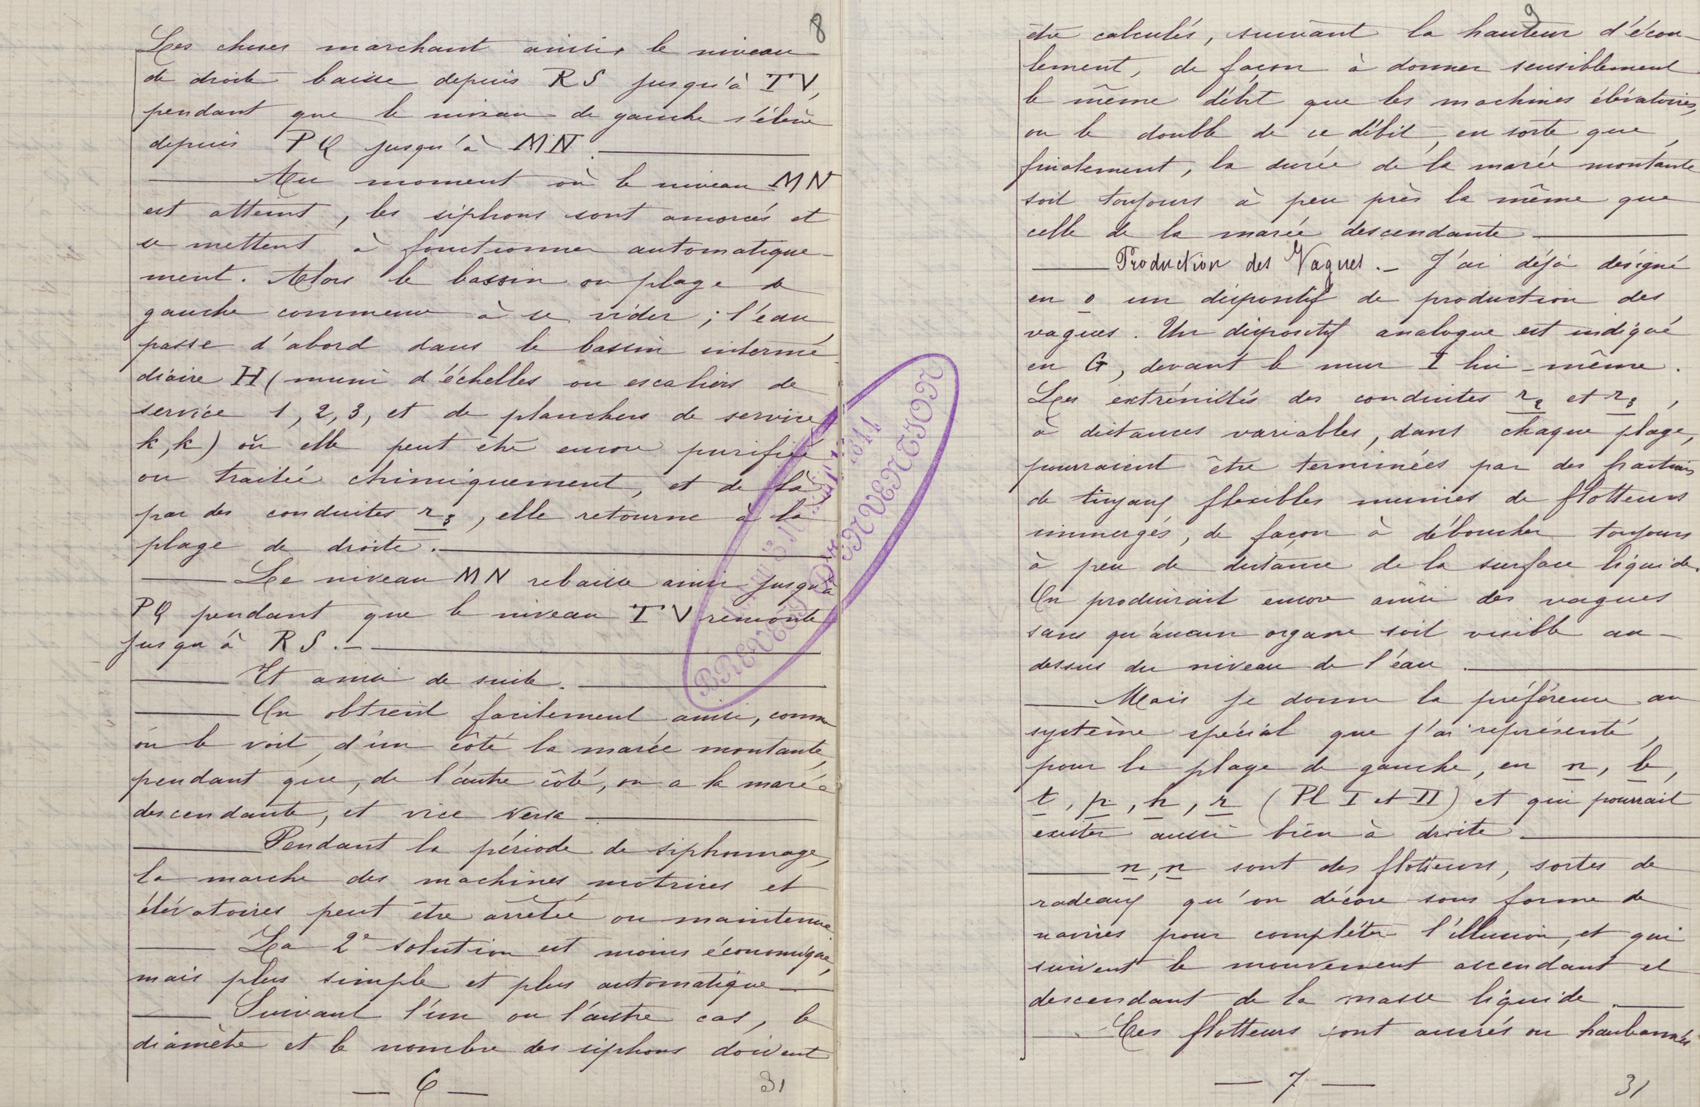 8
Les choses marchant ainsi, le niveau
de droite baisse depuis RS jusqu'à TV,
pendant que le niveau de gauche s'élève
depuis PQ jusqu'à MN.
Au moment où le niveau MN
est atteint, les siphons sont amorcés et
se mettent à fonctionner automatique-
ment. Alors le bassin ou plage de
gauche commence à se vider ; l'eau
passe d'abord dans le bassin intermé
diaire H (muni d'échelles ou escaliers de
service 1, 2, 3, et de planchers de service
k, k) où elle peut être encore purifiée
ou traitée chimiquement, et de là
par des conduites r3, elle retourne à la
plage de droite.
Le niveau MN rebaisse ainsi jusqu'à
PQ pendant que le niveau TV remonte
jusqu'à RS. -
Et ainsi de suite.
On obtient facilement ainsi, comme
on le voit, d'un côté la marée montante,
pendant que, de l'autre côté, on a la marée
descendante, et vice versa.
Pendant la période de siphonnage,
la marche des machines motrices et
élévatoires peut être arrêtée ou maintenue
La 2e solution est moins économique,
mais plus simple et plus automatique
Suivant l'un ou l'autre cas, le
diamètre et le nombre des siphons doivent
— 6 —
31
BREVET D'INVENTION
1911
9
être calculés, suivant la hauteur d'écou-
lement, de façon à donner sensiblement
le même débit que les machines élévatoires,
ou le double de ce débit, en sorte que,
finalement, la durée de la marée montante
soit toujours à peu près la même que
celle de la marée descendante
Production des Vagues. - J'ai déjà désigné
en o un dispositif de production des
vagues. Un dispositif analogue est indiqué
en G, devant le mur I lui-même.
Les extrémités des conduites r2 et r3,
à distances variables, dans chaque plage,
pourraient être terminées par des fractions
de tuyaux flexibles munies de flotteurs
immergés, de façon à déboucher toujours
à peu de distance de la surface liquide.
On produirait encore ainsi des vagues
sans qu'aucun organe soit visible au-
dessus du niveau de l'eau.
Mais je donne la préférence au
système spécial que j'ai représenté,
pour la plage de gauche, en n, b,
t, p, h, r (Pl I et II) et qui pourrait
exister aussi bien à droite.
n, n sont des flotteurs, sortes de
radeaux qu'on décore sous forme de
navires pour compléter l'illusion, et qui
suivent le mouvement ascendant et
descendant de la masse liquide.
Ces flotteurs sont ancrés ou haubannés
— 7 —
31